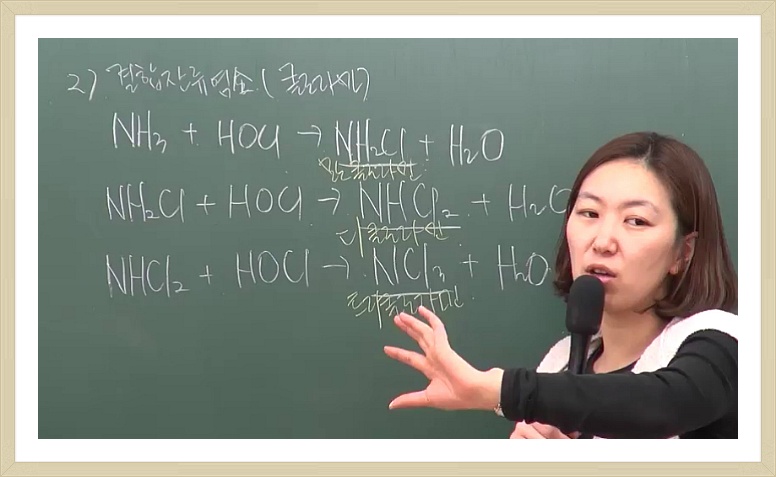 2) 결합잔류염소 (클로라민)
NH₃ + HOCl → NH₂Cl + H₂O
모노클로라민
NH₂Cl + HOCl → NHCl₂ + H₂O
디클로라민
NHCl₂ + HOCl → NCl₃ + H₂O
트리클로라민